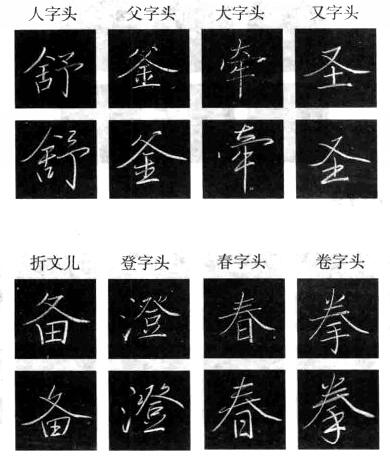 人字头 父字头 大字头 又字头
舒 釜 牵 圣
舒 釜 牵 圣
折文儿 登字头 春字头 卷字头
备 澄 春 拳
备 澄 春 拳